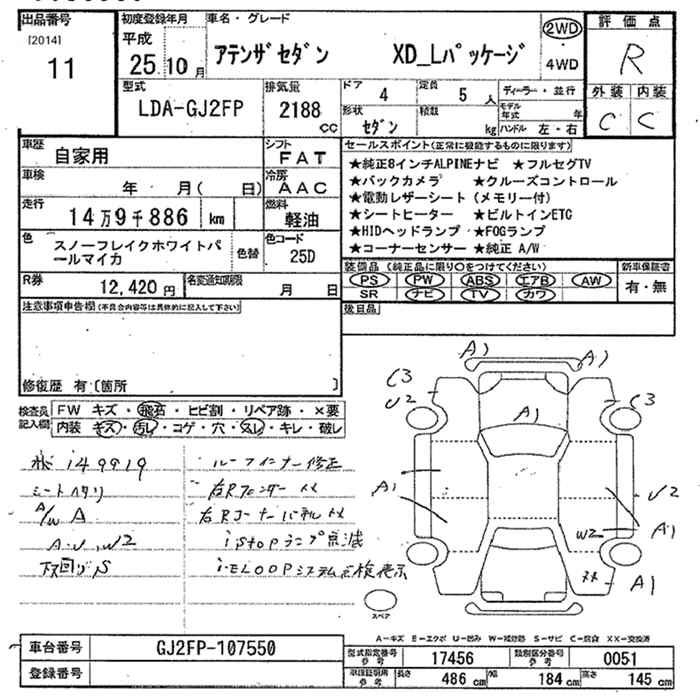 出品番号
[2014]
11
初度登録年月
平成
25年10月
車名・グレード
アテンザセダン XD_Lパッケージ
2WD
4WD
評価点
R
外装 内装
C C
型式
LDA-GJ2FP
排気量
2188 cc
ドア 4
定員 5 人
ディーラー・並行
形状 セダン
積載 kg
モデル年式 年
ハンドル 左・右
車歴
自家用
シフト
FAT
車検
年 月( 日)
冷房
AAC
走行
14万9千886 km
燃料
軽油
色
スノーフレイクホワイトパールマイカ
色替
色コード
25D
R券
12,420 円
名変通知期限
月 日
セールスポイント(正常に機能するものに限ります)
★純正8インチALPINEナビ ★フルセグTV
★バックカメラ ★クルーズコントロール
★電動レザーシート (メモリー付)
★シートヒーター ★ビルトインETC
★HIDヘッドランプ ★FOGランプ
★コーナーセンサー ★純正 A/W
装備品 (純正品に限り○をつけてください)
PS PW ABS エアB AW
SR ナビ TV カワ
新車保証書
有・無
後日品
注意事項申告欄(不具合内容等は具体的に記入して下さい)
修復歴 有〔箇所 〕
検査員記入欄
FW キズ・飛石・ヒビ割・リペア跡・×要
内装 キズ・汚レ・コゲ・穴・スレ・キレ・破レ
149919
シートヘタリ
A/W A
A.U.W2
下回りS
ルーフインナー修正
右Rフェンダー XX
右Rコーナーパネル XX
i stopランプ点滅
i-ELOOPシステム点検表示
A1
A1
C3
U2
A1
C3
A1
U2
W2
A1
XX
A1
スペア
A-キズ E-エクボ U-凹み W-補修跡 S-サビ C-腐食 XX-交換済
車台番号
GJ2FP-107550
登録番号
型式指定番号 参考
17456
類別区分番号 参考
0051
車検証明細 参考
長さ 486 cm
幅 184 cm
高さ 145 cm